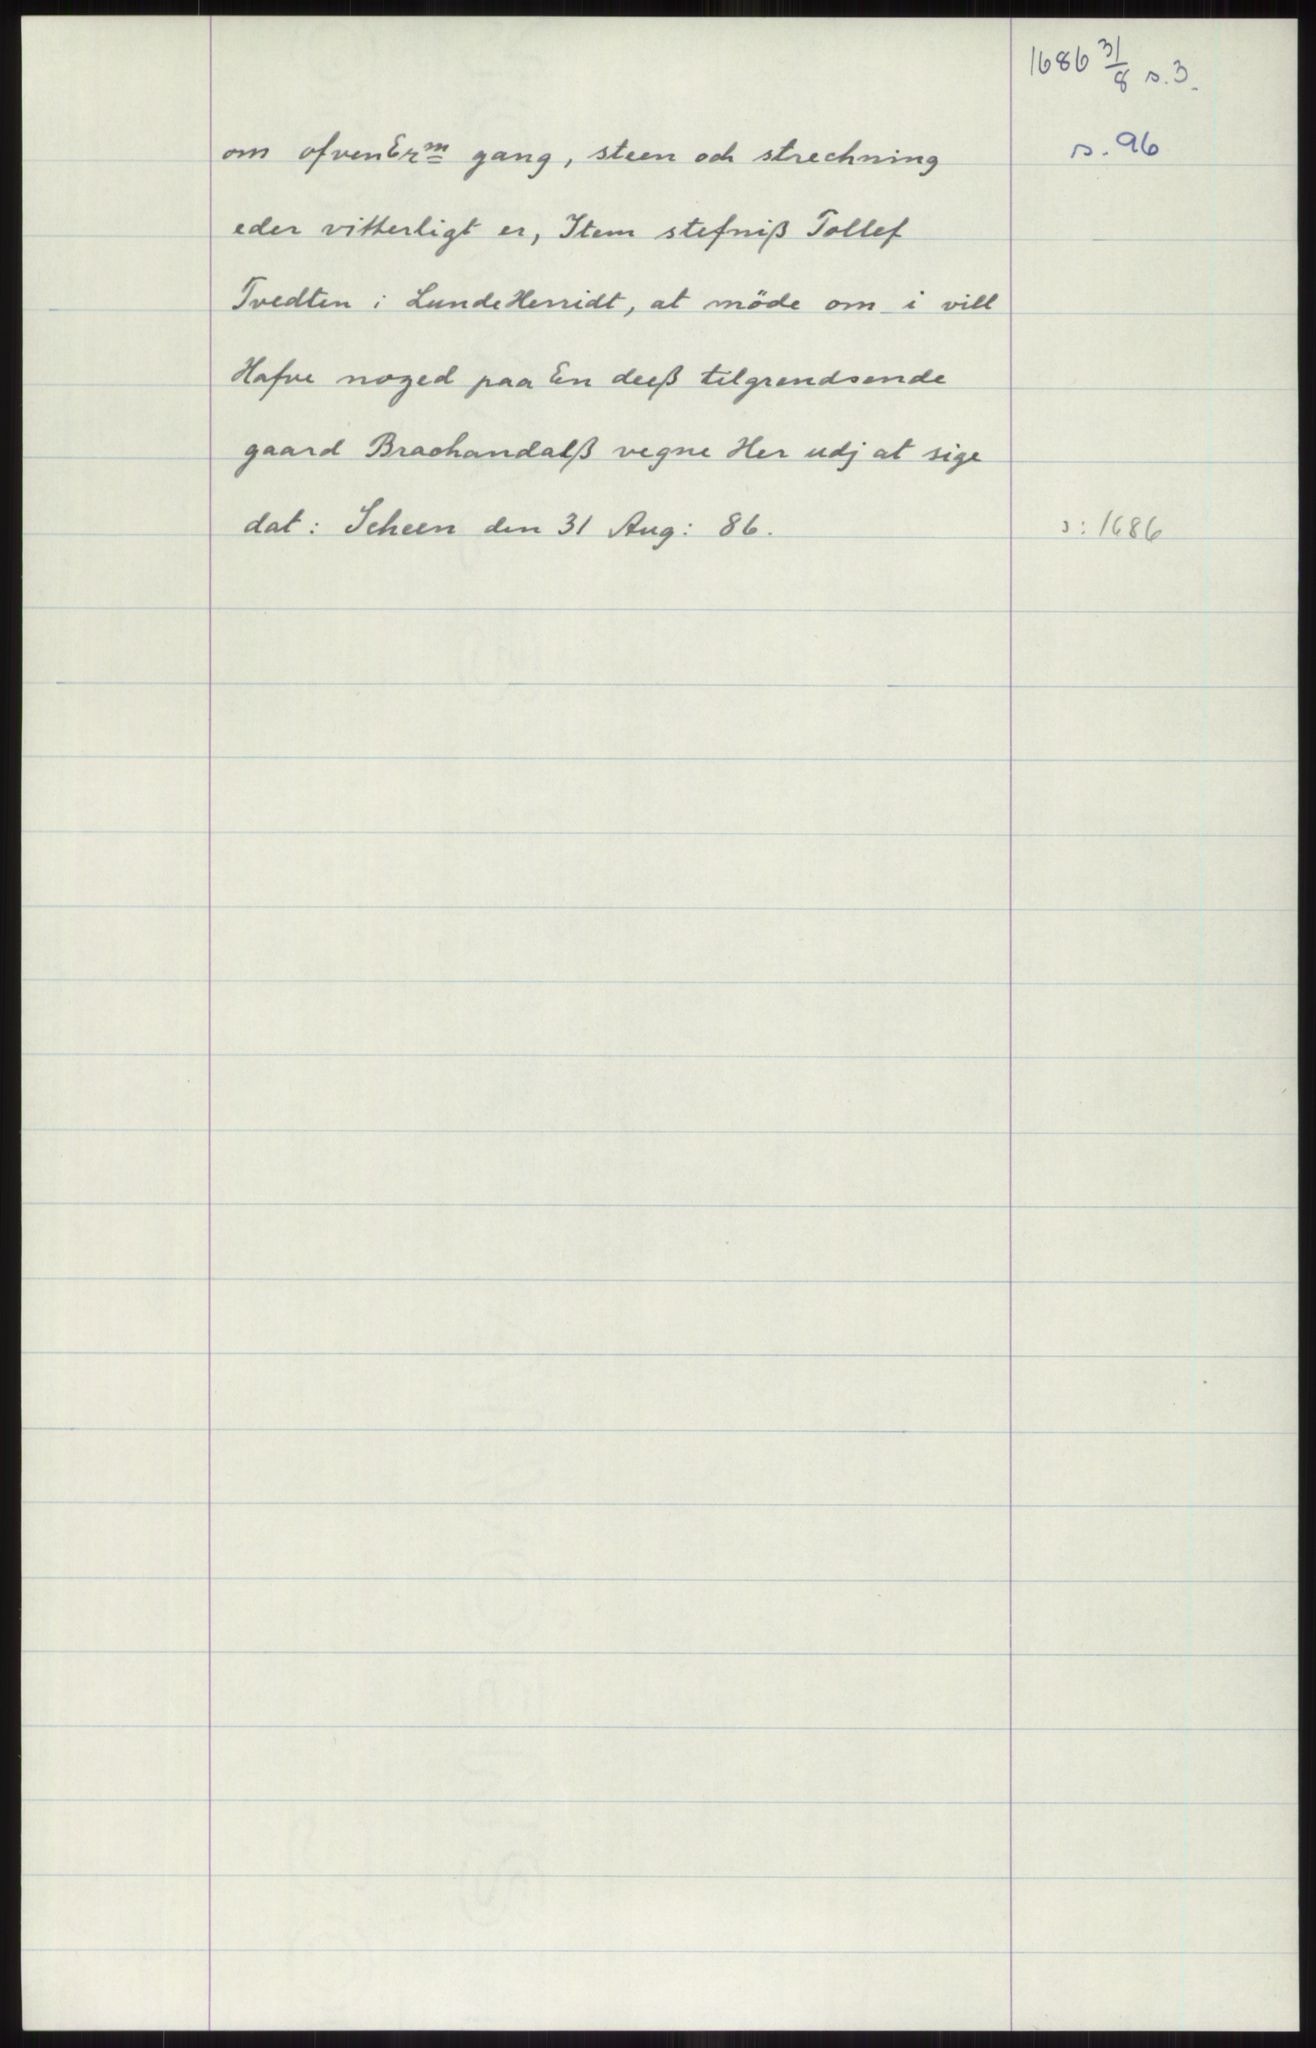 1686 31/8 s. 3.
s. 96
om ofvenErm gang, steen och strechning
eder vitterligt er, Item stefniß Tollef
Tvedten i Lunde Herridt, at möde om i vill
Hafve noged paa En deeß tilgrendsende
gaard Braohandalß vegne Her udj at sige
dat: Scheen den 31 Aug: 86.
ɔ: 1686